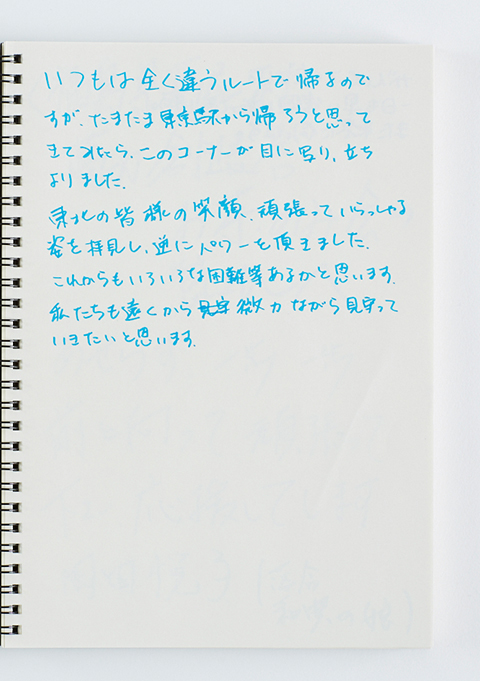 いつもは全く違うルートで帰るので
すが、たまたま東京駅から帰ろうと思って
きてみたら、このコーナーが目に写り、立ち
よりました。
東北の皆様の笑顔、頑張っていらっしゃる
姿を拝見し、逆にパワーを頂きました。
これからもいろいろな困難等あるかと思います。
私たちも遠くから微力ながら見守って
いきたいと思います。